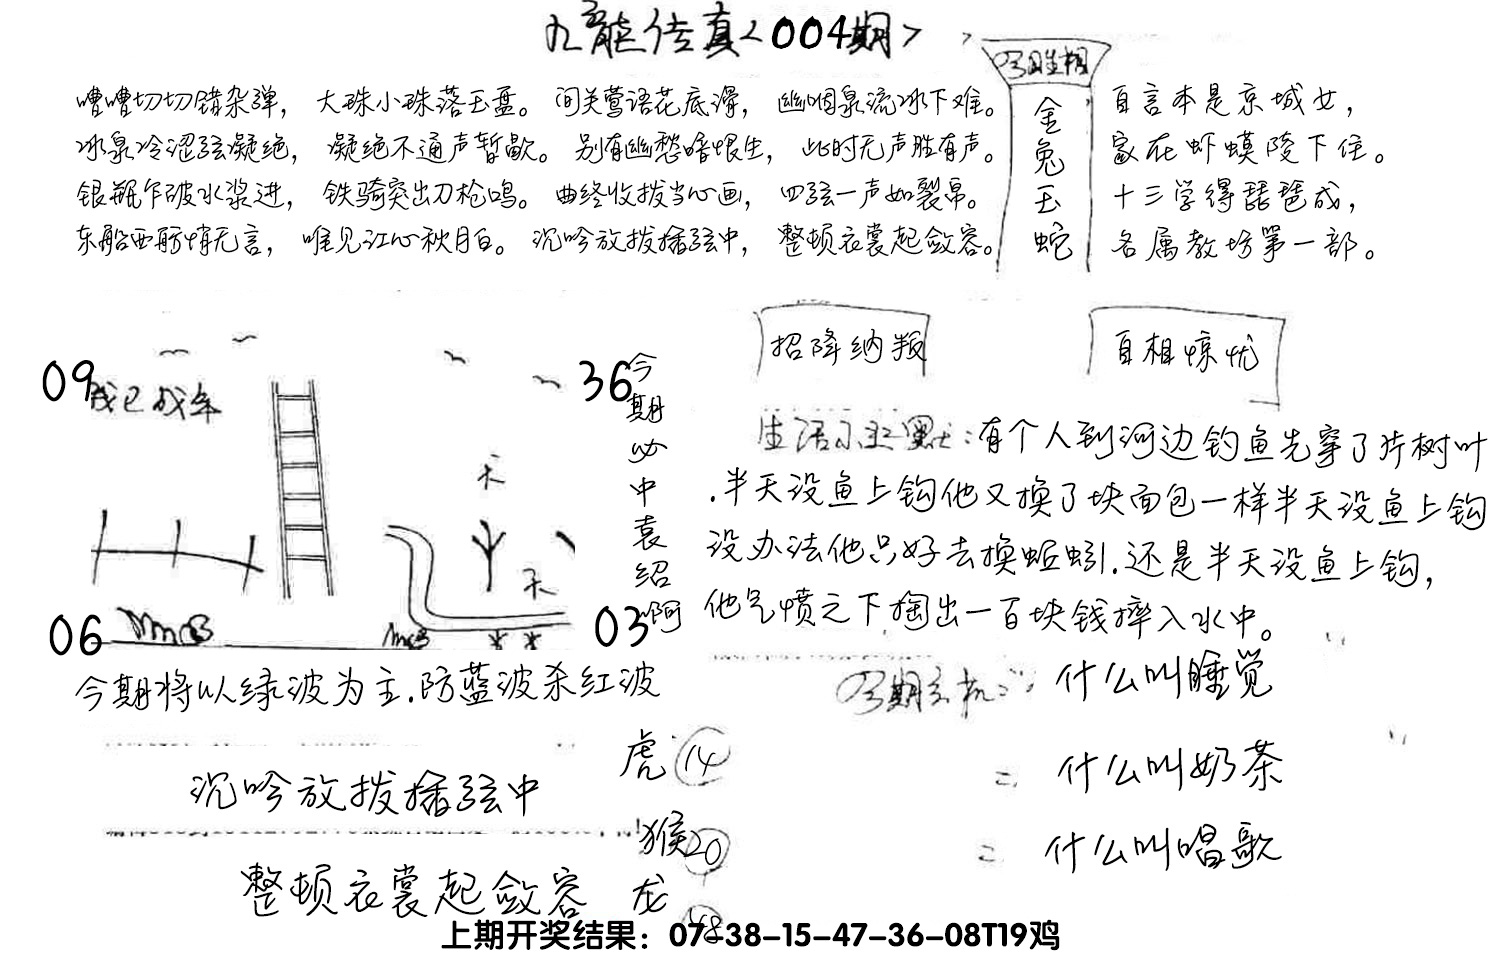 九龙传真<004期>
嘈嘈切切错杂弹，大珠小珠落玉盘。间关莺语花底滑，幽咽泉流冰下难。
冰泉冷涩弦凝绝，凝绝不通声暂歇。别有幽愁暗恨生，此时无声胜有声。
银瓶乍破水浆迸，铁骑突出刀枪鸣。曲终收拨当心画，四弦一声如裂帛。
东船西舫悄无言，唯见江心秋月白。沉吟放拨插弦中，整顿衣裳起敛容。
金兔玉蛇
自言本是京城女，
家在虾蟆陵下住。
十三学得琵琶成，
名属教坊第一部。
招降纳叛
自相惊忧
09
36
06
03
今期必中袁绍啊
有个人到河边钓鱼先穿了片树叶
.半天没鱼上钩他又换了块面包一样半天没鱼上钩
没办法他只好去换蚯蚓.还是半天没鱼上钩，
他气愤之下掏出一百块钱摔入水中。
今期将以绿波为主.防蓝波杀红波
什么叫睡觉
= 什么叫奶茶
= 什么叫唱歌
沉吟放拨插弦中
整顿衣裳起敛容
虎 14
猴 20
龙 48
上期开奖结果：07-38-15-47-36-08T19鸡